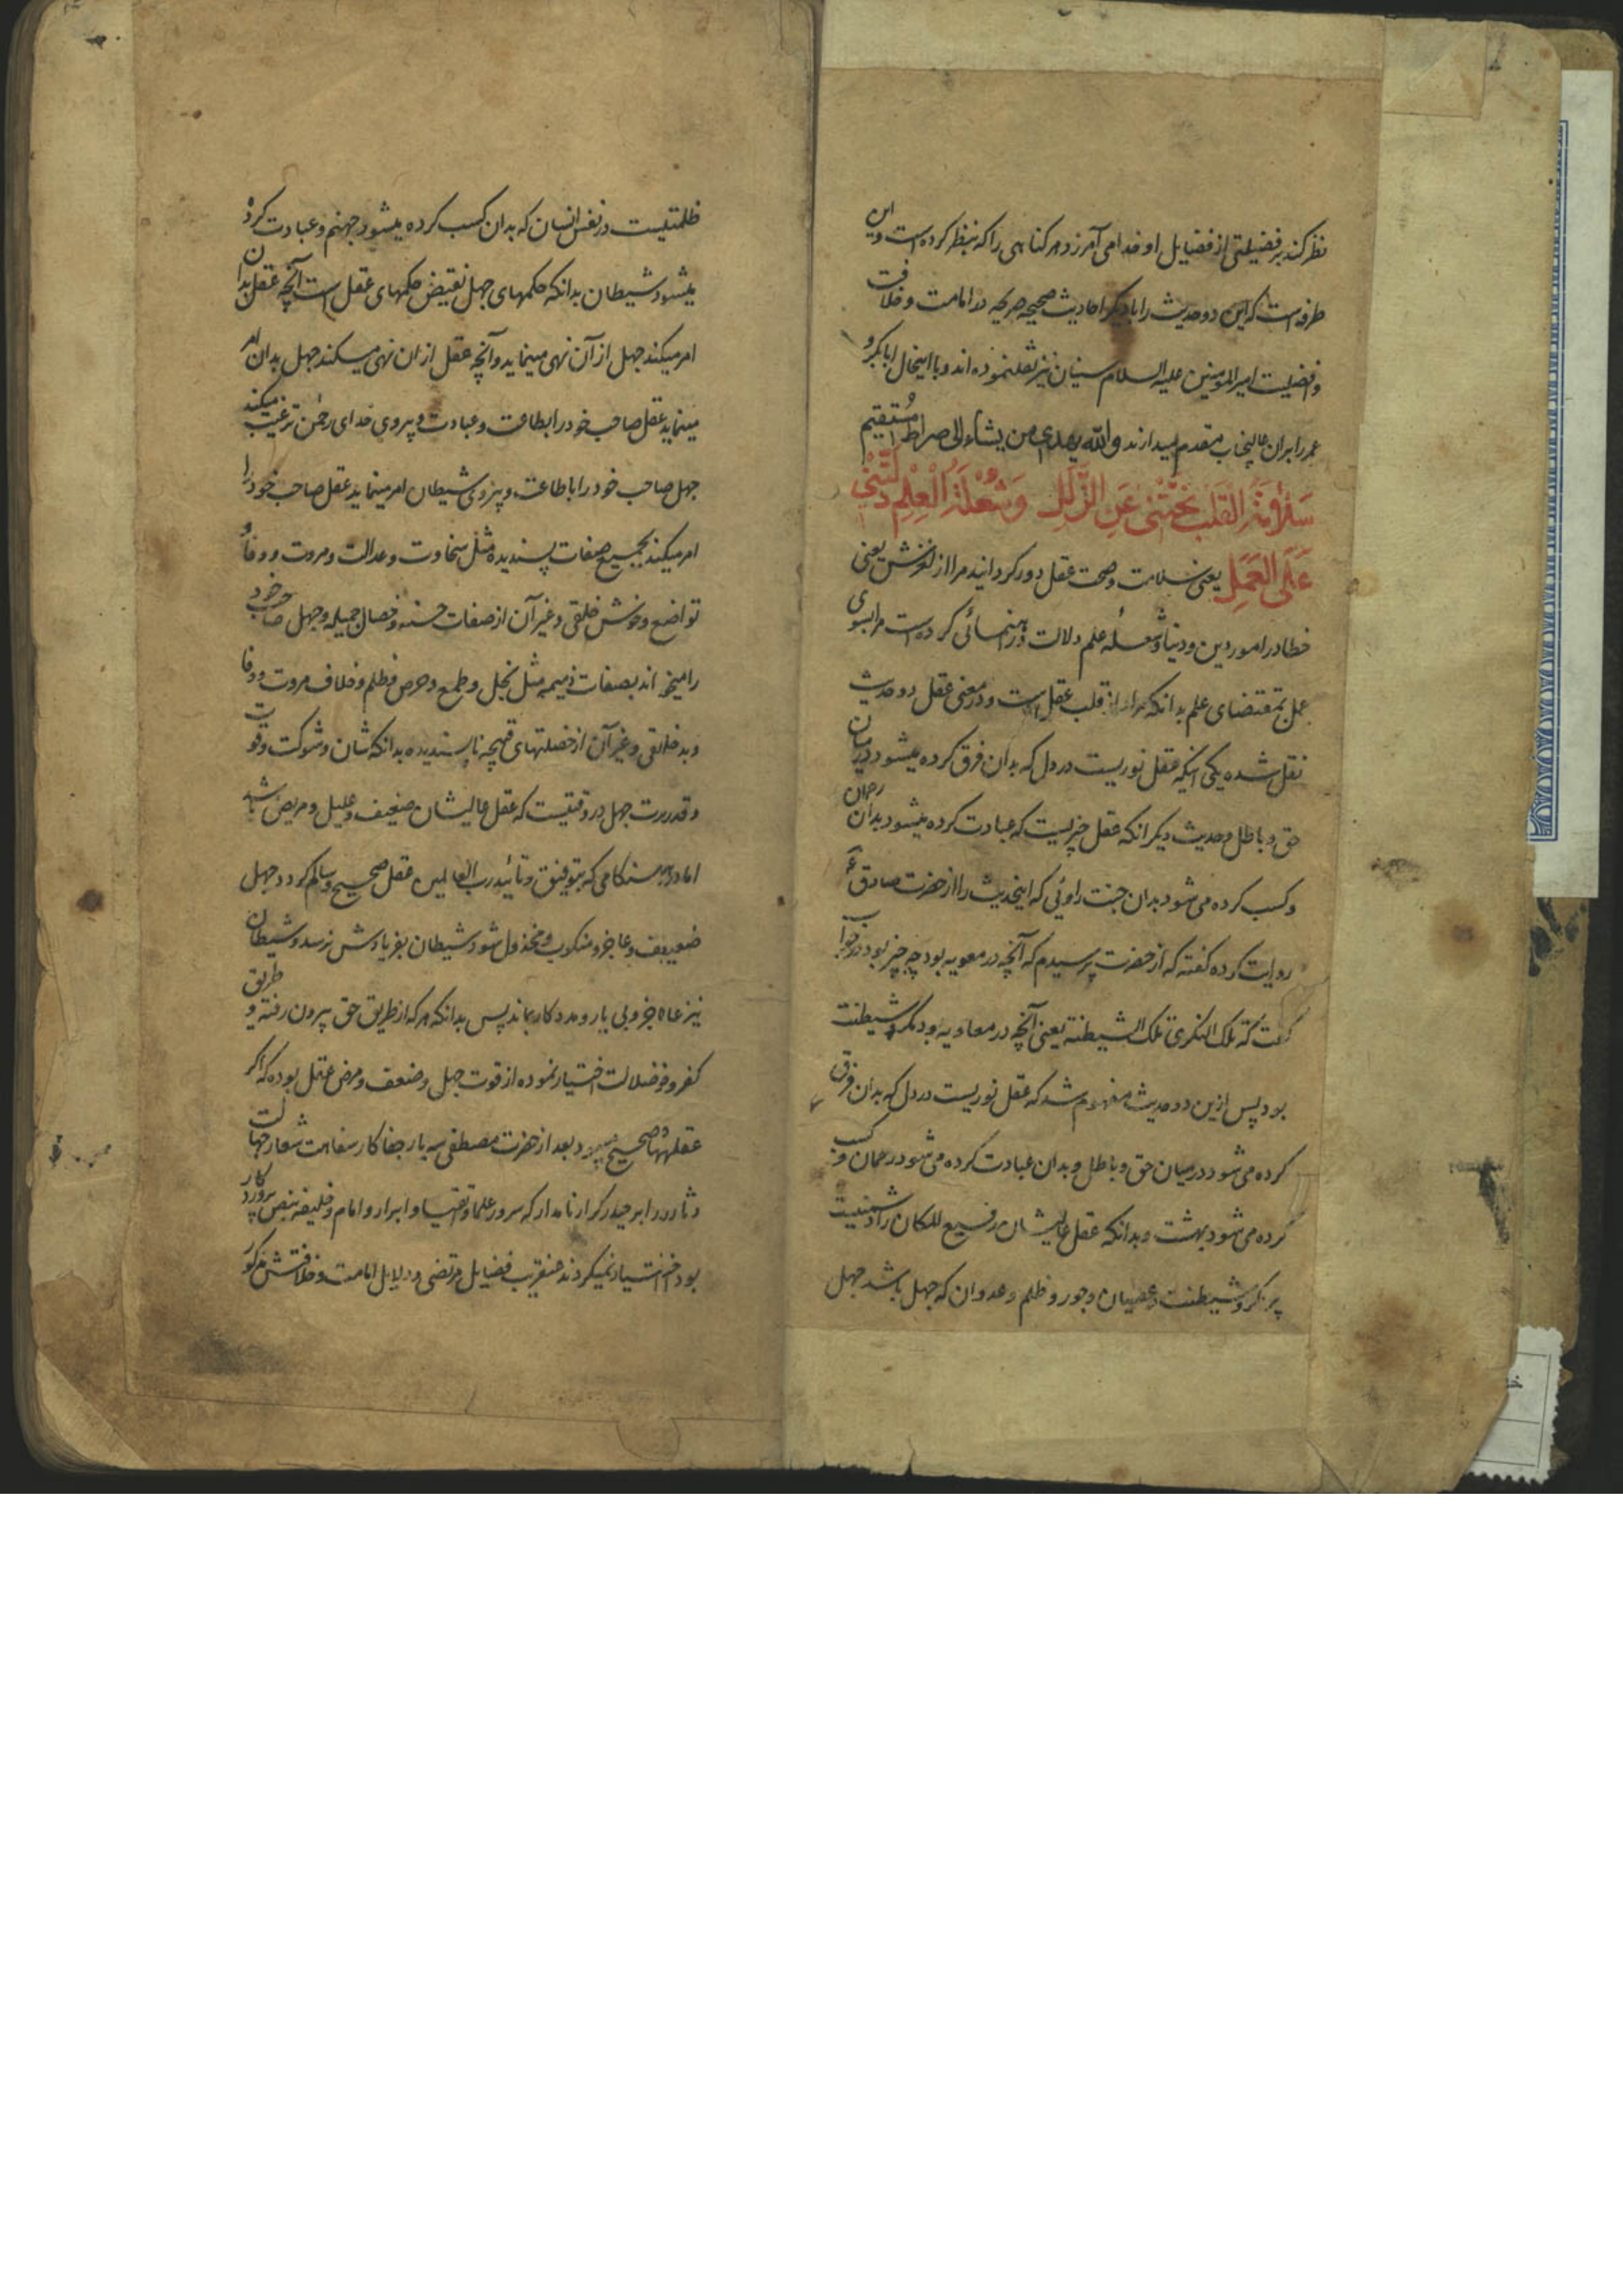 نظر کند بر فضیلتی از فضایل او خدا می آمرزد هر کناهی را که بنظر کرده است و این
طرفه است که این دو حدیث را با دیکر احادیث صحیحه صریحه در امامت و خلافت
و افضلیت امیر المومنین علیه السلام سنیان نیز نقل نموده اند و با اینحال ابابکر و
عمر را بران عالیجناب مقدم میدارند والله یهدی من یشاء الی صراط مستقیم
سَلَامَةُ الْقَلْبِ نَحَّتْنِی عَنِ الزَّلَلِ وَشُعْلَةُ الْعِلْمِ دَلَّتْنِی
عَلَی الْعَمَلِ یعنی سلامت و صحت عقل دور کردانید مرا از لغزش یعنی
خطا در امور دین و دنیا و شعلهٔ علم دلالت و رهنمائی کرده است مرا بسوی
عمل بمقتضای علم بدانکه مراد از قلب عقل است و در معنی عقل دو حدیث
نقل شده یکی اینکه عقل نوریست در دل که بدان فرق کرده میشود در میان
حق و باطل و حدیث دیکر انکه عقل چیزیست که عبادت کرده میشود بدان رحمان
و کسب کرده می شود بدان جنت راوئی که اینحدیث را از حضرت صادق ع
روایت کرده کفته که از حضرت پرسیدم که آنچه در معویه بود چه چیز بود در جواب
کفت که تلک النکری تلک الشیطنة یعنی آنچه در معاویه بود مکر و شیطنت
بود پس ازین دو حدیث مفهوم شد که عقل نوریست در دل که بدان فرق
کرده می شود در میان حق و باطل و بدان عبادت کرده می شود رحمان و کسب
کرده می شود بهشت و بدانکه عقل عالیشان رفیع المکان را دشمنیست
پر مکر و شیطنت و عصیان و جور و ظلم و عدوان که جهل باشد جهل
ظلمتیست در نفس انسان که بدان کسب کرده میشود جهنم و عبادت کرده
میشود شیطان بدانکه حکمهای جهل نقیض حکمهای عقل است آنچه عقل بدان
امر میکند جهل از آن نهی مینماید و آنچه عقل از ان نهی میکند جهل بدان امر
مینماید عقل صاحب خود را بطاعت و عبادت و پیروی خدای رحمن ترغیب میکند
جهل صاحب خود را باطاعت و پیروی شیطان امر مینماید عقل صاحب خود را
امر میکند بجمیع صفات پسندیده مثل سخاوت و عدالت و مروت و وفا و
تواضع و خوش خلقی و غیر آن از صفات حسنه و خصال جمیله و جهل صاحب خود
را میخواند بصفات ذمیمه مثل بخل و طمع و حرص و ظلم و خلاف مروت و وفا
و بد خلقی و غیر آن از خصلتهای قبیحه ناپسندیده بدانکه شان و شوکت و قوت
و قدرت جهل در وقتیست که عقل عالیشان ضعیف و علیل و مریض باشد
اما در هنکامی که بتوفیق و تائید رب العالمین عقل صحیح و سالم کردد جهل
ضعیف و عاجز و منکوب و مخذول شود شیطان بفریادش نرسد و شیطان
نیز عاجز و بی یار و مددکار بماند پس بدانکه هر که از طریق حق بیرون رفته و طریق
کفر و ضلالت اختیار نموده از قوت جهل و ضعف و مرض عقل بوده که اکر
عقلهها صحیح میبود بعد از حضرت مصطفی سه یار جفا کار سفاهت شعار جهالت
دثار را بر حیدر کرار نامدار که سرور علما و اتقیا و ابرار و امام و خلیفه بنص پروردکار
بود اختیار نمیکردند عنقریب فضایل مرتضی و دلایل امامت و خلافتش مذکور